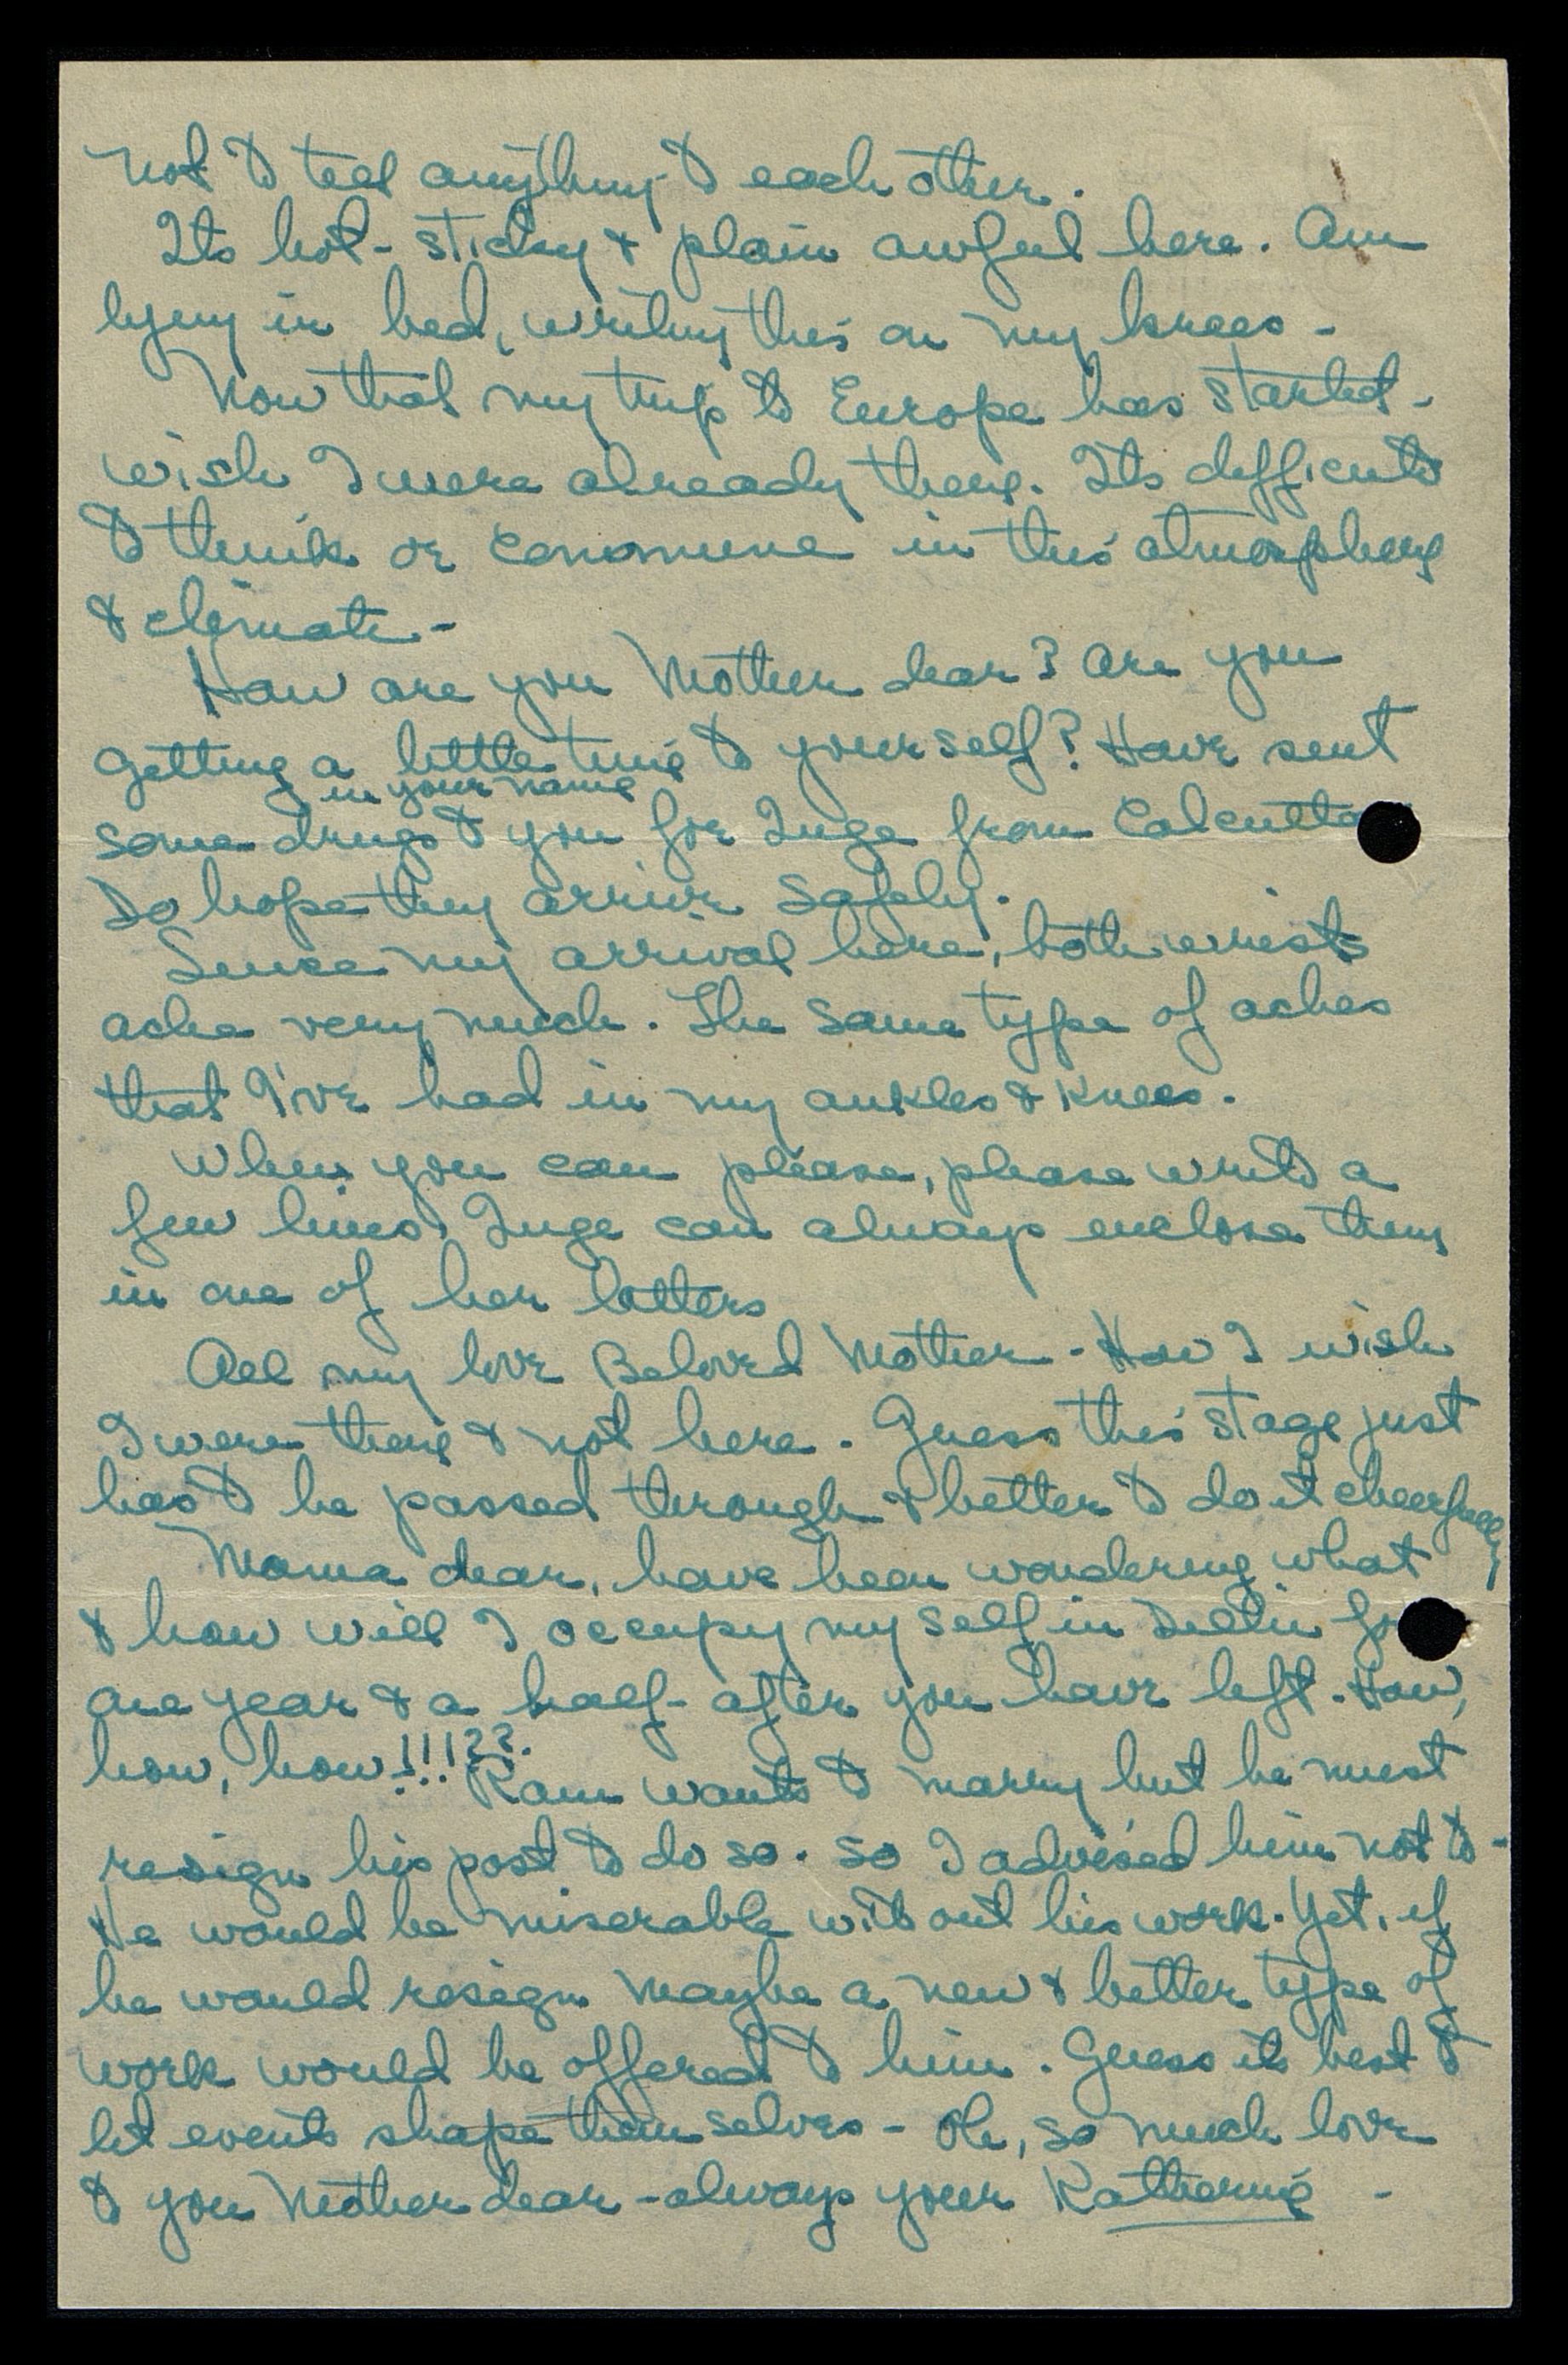 Not to tell anything to each other.
Its hot - sticky & plain awful here. Am
lying in bed, writing this on my knees -
Now that my trip to Europe has started -
wish I were already there. Its difficult
to think or commune in this atmosphere
& climate -
How are you Mother dear? Are you
getting a little time to yourself? Have sent
in your name
some drugs to you for Inge from Calcutta
Do hope they arrive safely.
Since my arrival here, both wrists
ache very much. The same type of aches
that I've had in my ankles & knees.
When you can please, please write a
few lines. Inge can always enclose them
in one of her letters
All my love Beloved Mother - How I wish
I were there & not here. Guess this stage just
has to be passed through & better to do it cheerfully
Mama dear, have been wondering what
& how will I occupy myself in Delhi for
one year & a half - after you have left. How,
how, how!!!??.
Ram wants to marry but he must
resign his post to do so. So I advised him not to -
He would be miserable without his work. Yet, if
he would resign maybe a new & better type of
work would be offered to him. Guess its best to
let events shape themselves - Oh, so much love
to you Mother dear - always your Katherine -